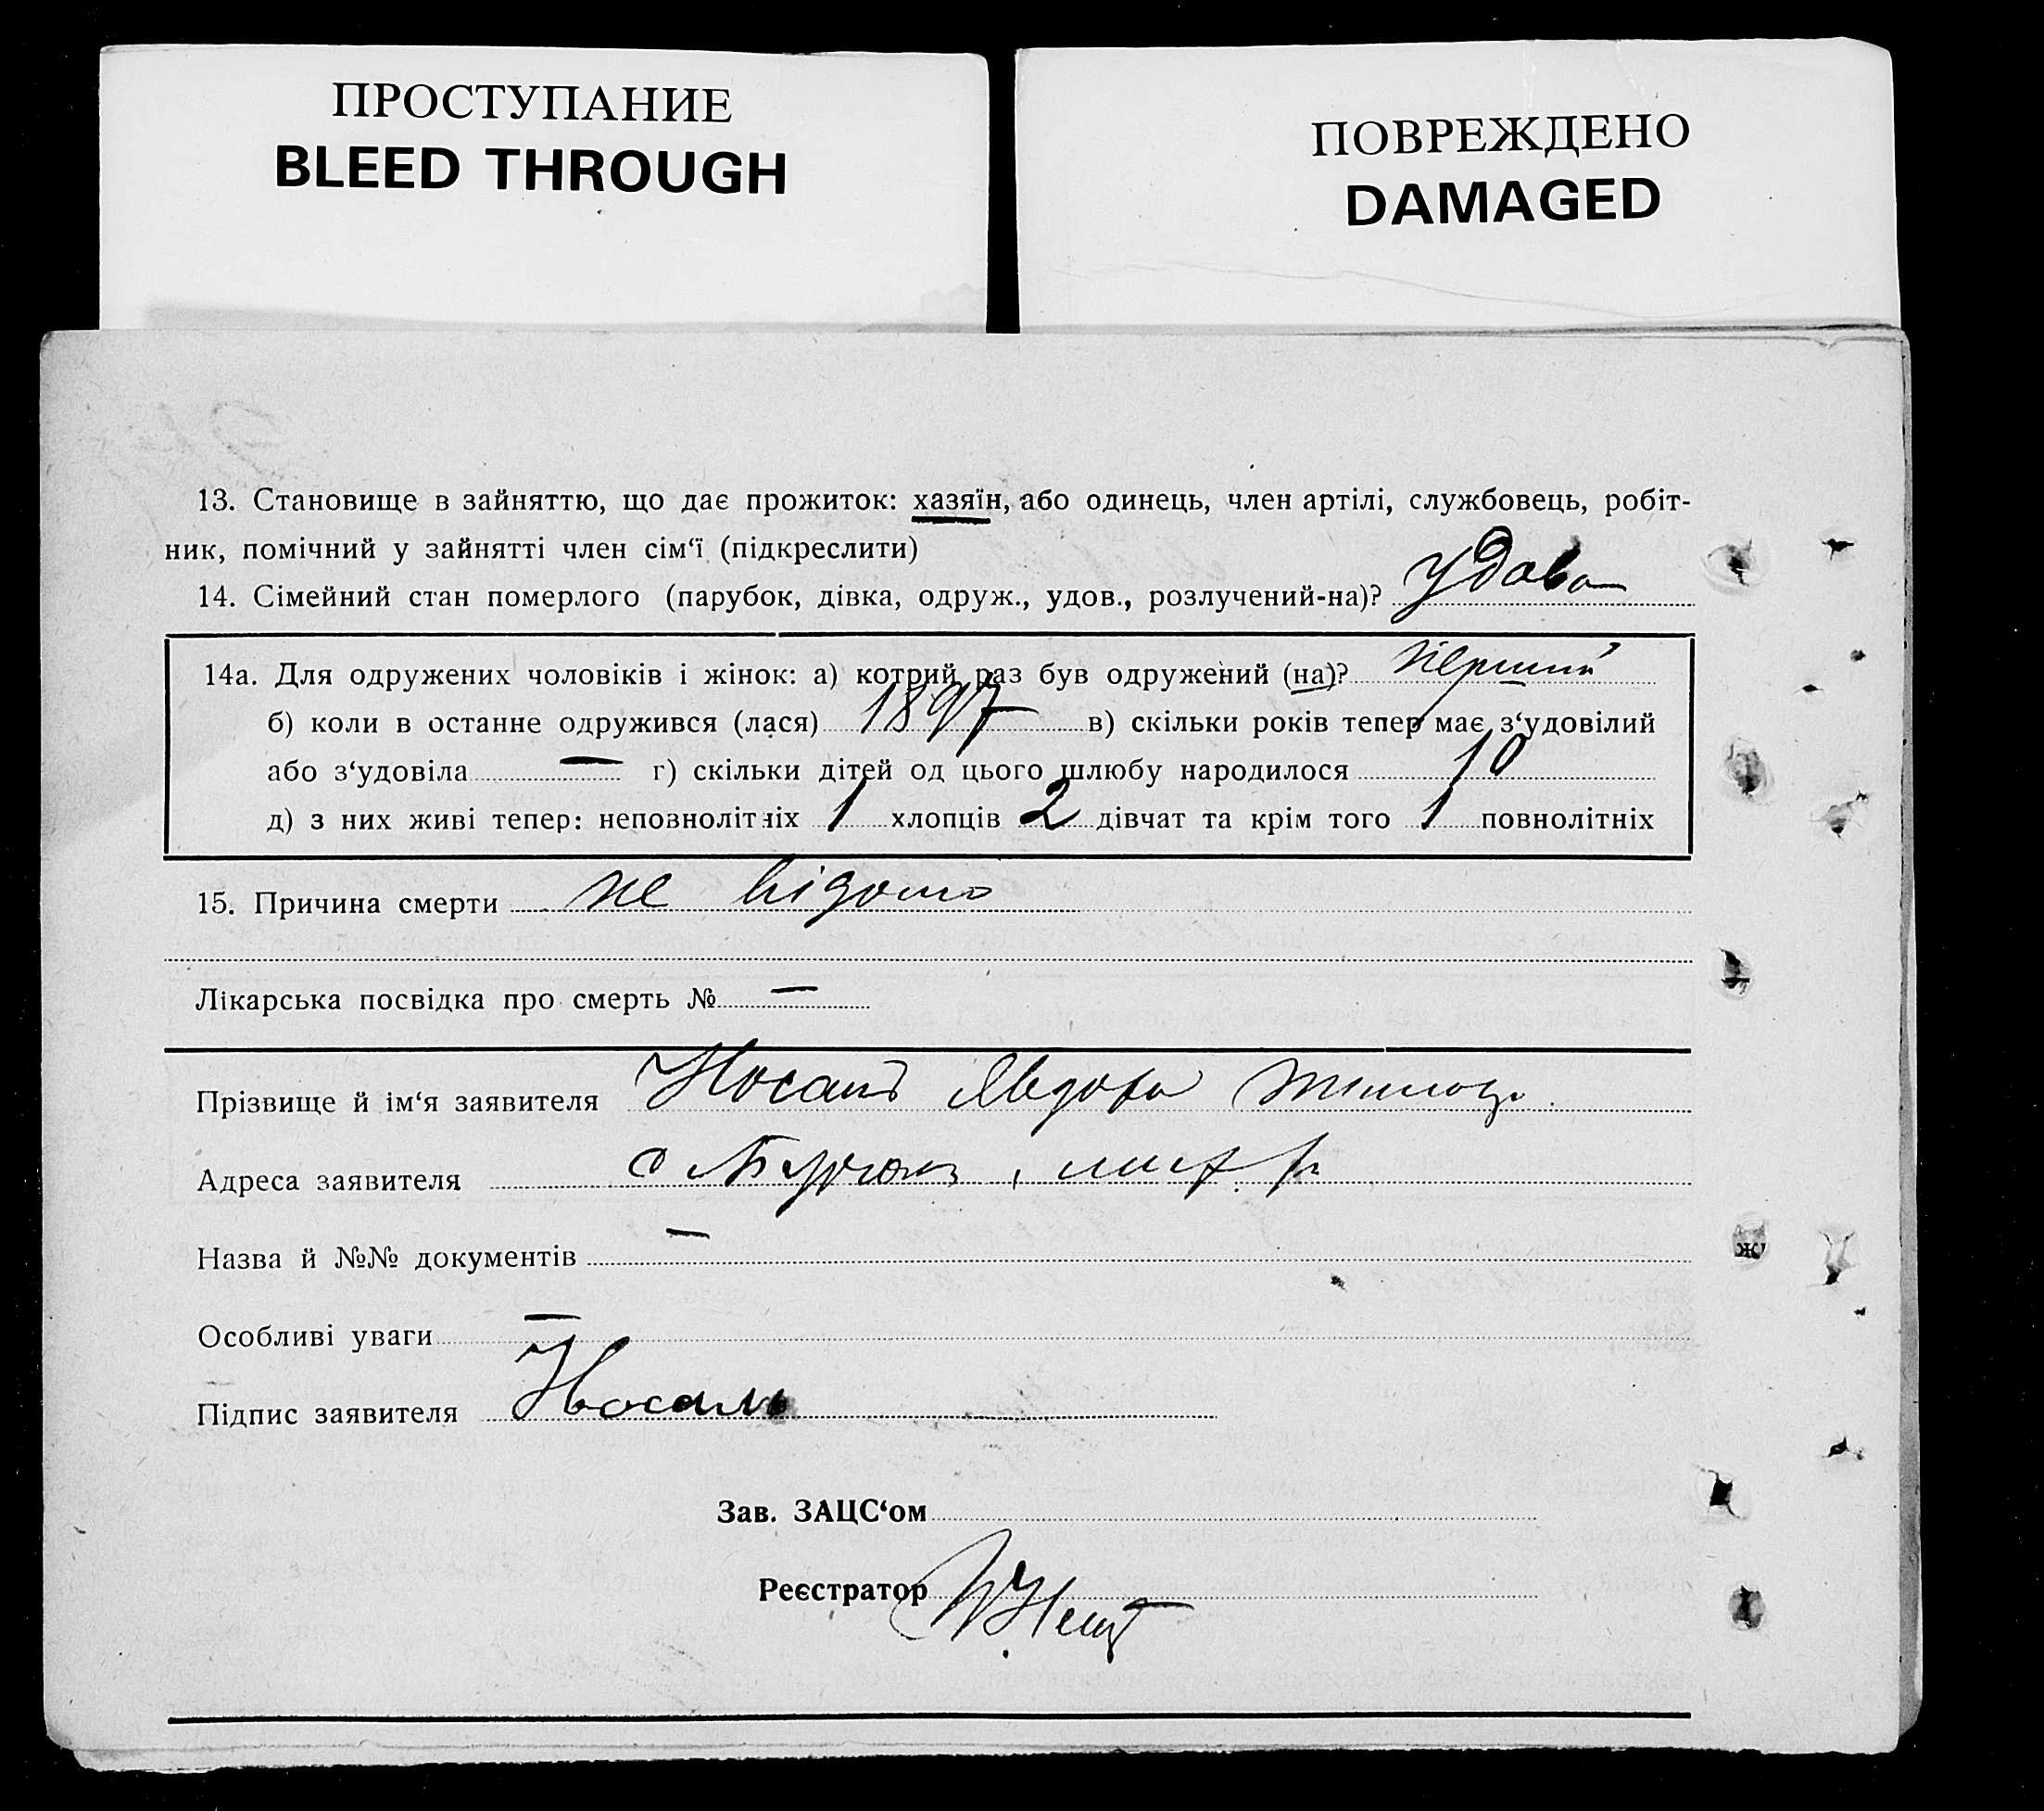 ПРОСТУПАНИЕ
BLEED THROUGH
ПОВРЕЖДЕНО
DAMAGED
13. Становище в зайняттю, що дає прожиток: хазяїн, або одинець, член артілі, службовець, робіт-
ник, помічний у зайнятті член сім‘ї (підкреслити)
14. Сімейний стан померлого (парубок, дівка, одруж., удов., розлучений-на)? удова
14а. Для одружених чоловіків і жінок: а) котрий раз був одружений (на)? перший
б) коли в останне одружився (лася) 1897 в) скільки років тепер має з‘удовілий
або з‘удовіла — г) скільки дітей од цього шлюбу народилося 10
д) з них живі тепер: неповнолітніх 1 хлопців 2 дівчат та крім того 1 повнолітніх
15. Причина смерти не відомо
Лікарська посвідка про смерть № —
Прізвище й ім‘я заявителя Носаль Явдоха
Адреса заявителя с
Назва й №№ документів —
Особливі уваги —
Підпис заявителя Носаль
Зав. ЗАЦС‘ом
Реєстратор
ж